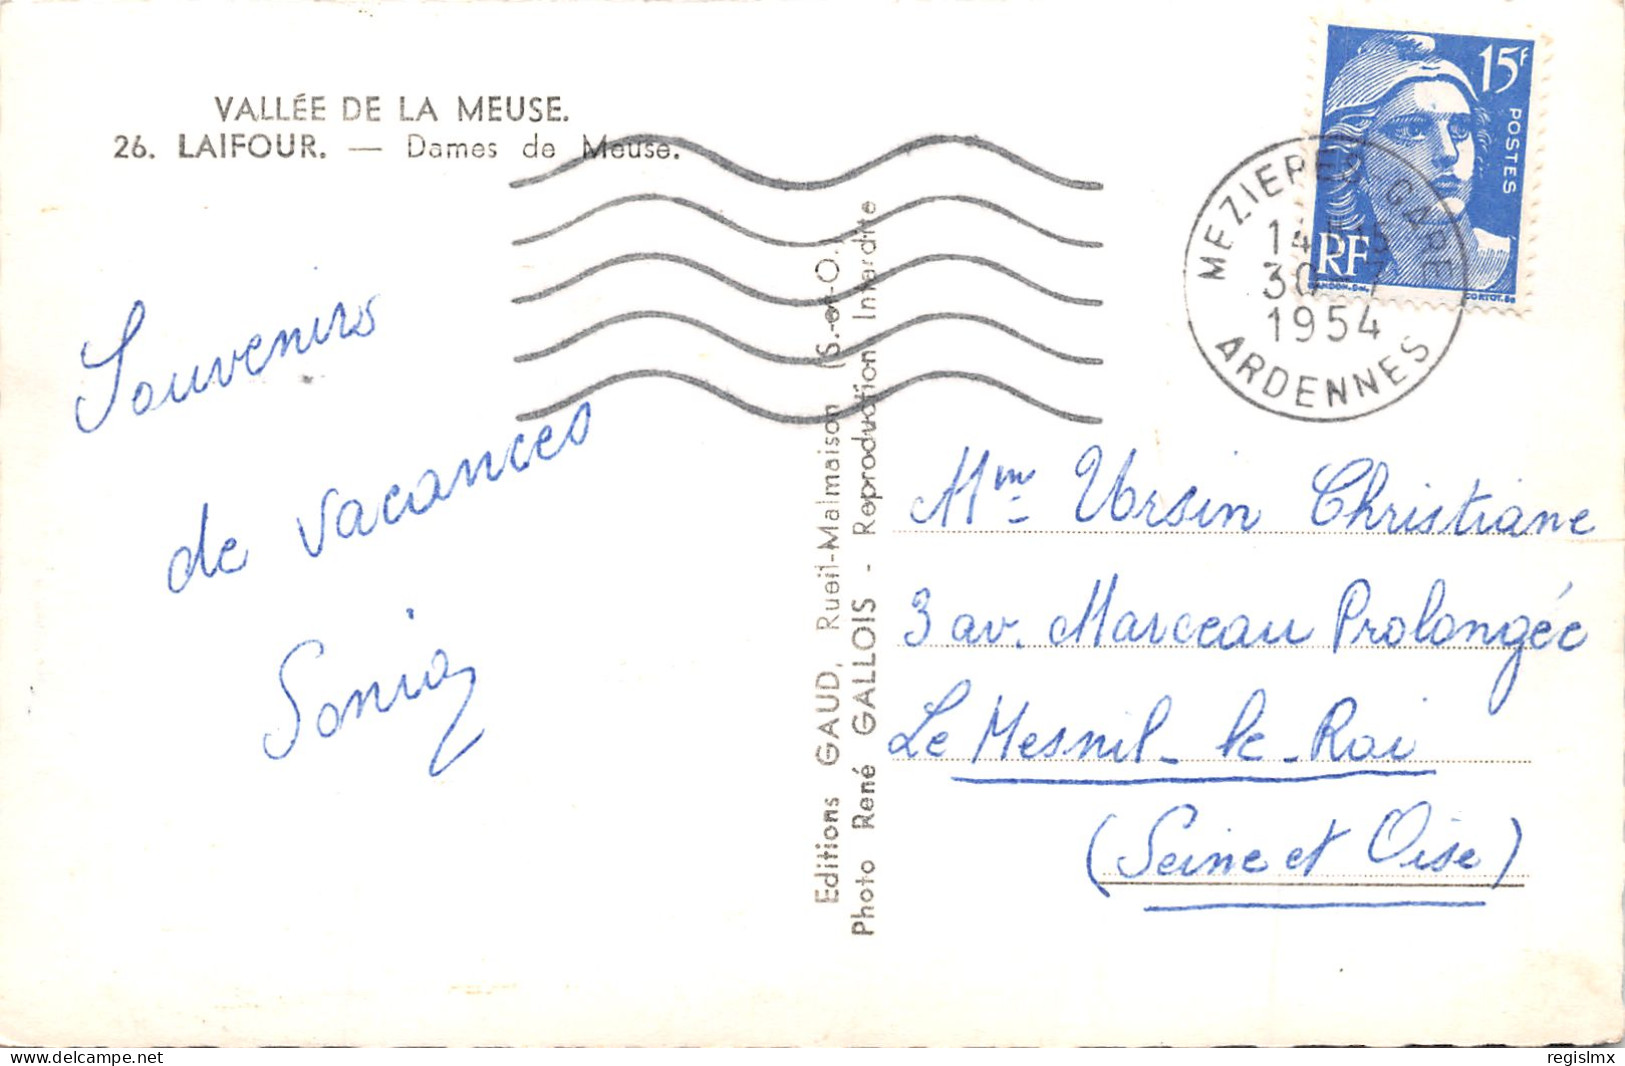 VALLÉE DE LA MEUSE.
26. LAIFOUR. — Dames de Meuse.
Souvenirs
de vacances
Sonia
Editions GAUD, Rueil-Malmaison (S.-et-O.)
Photo René GALLOIS - Reproduction Interdite
15F
POSTES
RF
CORTOT.SC
MEZIERES-GARE
30 -7
1954
ARDENNES
Mme Ursin Christiane
3 av. Marceau Prolongée
Le Mesnil-le-Roi
(Seine et Oise)
regislmx
https://www.delcampe.net